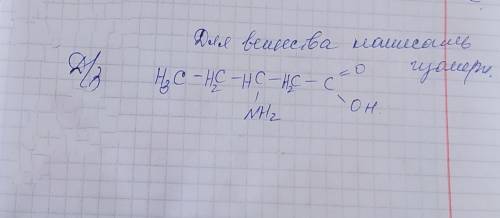 Для вещества написать
Д/з изомеры.
H₃C - H₂C - HC - H₂C - C = O
NH₂ OH